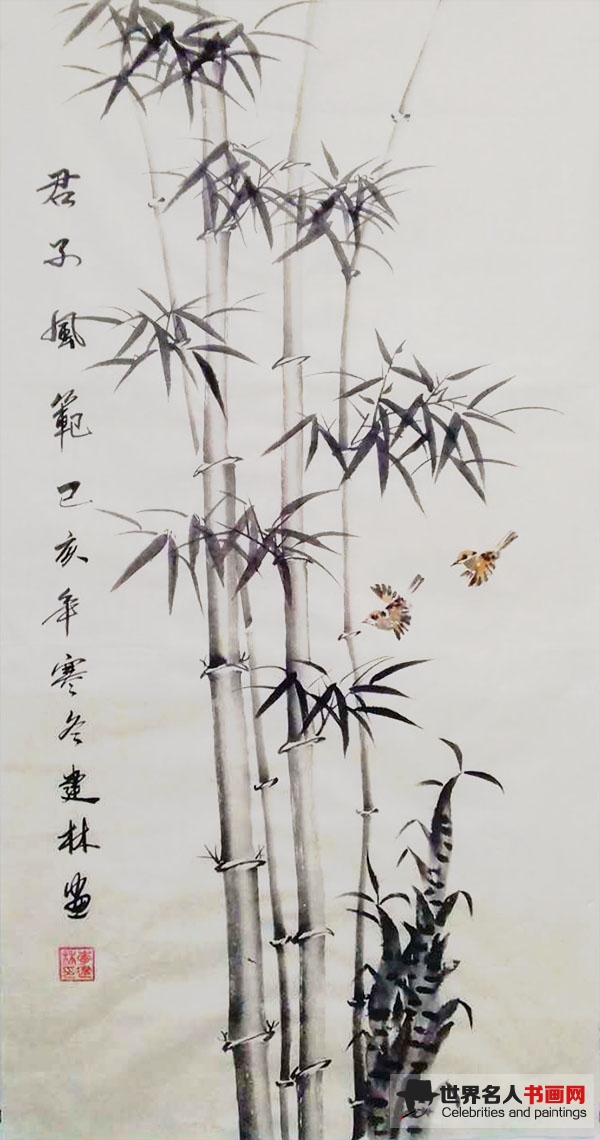 君子風範 己亥年寒冬建林畫
世界名人书画网
Celebrities and paintings